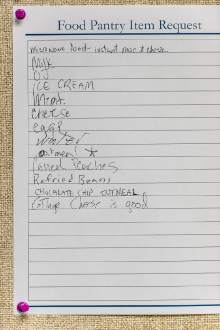 Food Pantry Item Request
microwave food - instant mac & cheese
Milk
OJ
ICE CREAM
Meat
CHEESE
eggs
oatmeal
Canned Peaches
Refried Beans
CHOCOLATE CHIP OATMEAL
Cottage Cheese is good